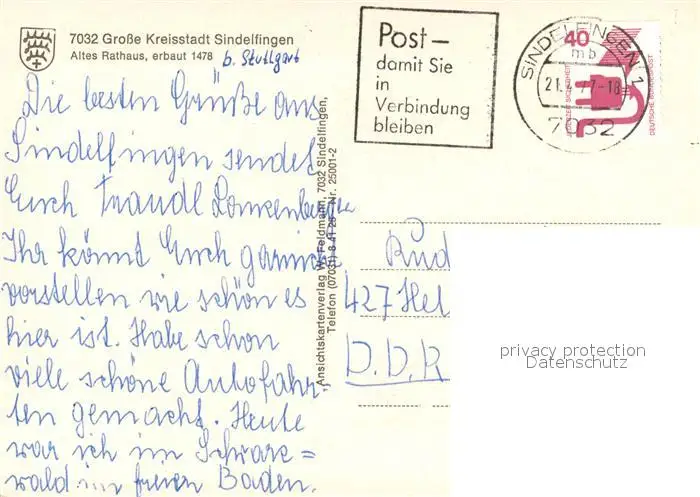 7032 Große Kreisstadt Sindelfingen
Altes Rathaus, erbaut 1478 b. Stuttgart
Die besten Grüße aus
Sindelfingen sendet
Euch Traudl
Ihr könnt Euch gar nicht
vorstellen wie schön es
hier ist. Habe schon
viele schöne Autofahr-
ten gemacht. Heute
war ich im Schwarz=
wald im freien Baden.
Ansichtskartenverlag W. Feldmann, 7032 Sindelfingen,
Telefon (07031) 8 41 26 Nr. 25001-2
Post –
damit Sie
in
Verbindung
bleiben
SINDELFINGEN 1
mb
21.4.77-18
7032
40
DEUTSCHE BUNDESPOST
Rud
427 Het
D.D.R
privacy protection
Datenschutz